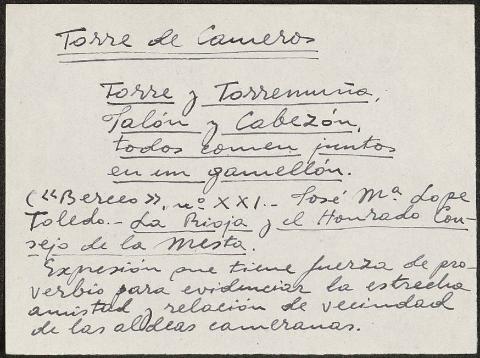 Torre de Cameros
Torre y Torremuña,
Jalón y Cabezón,
todos comen juntos
en un gamellón.
(«Berceo», nº XXI.- José Mª Lope
Toledo.- La Rioja y el Honrado Con-
sejo de la Mesta.
Expresión que tiene fuerza de pro-
verbio para evidenciar la estrecha
amistad y relación de vecindad
de las aldeas cameranas.